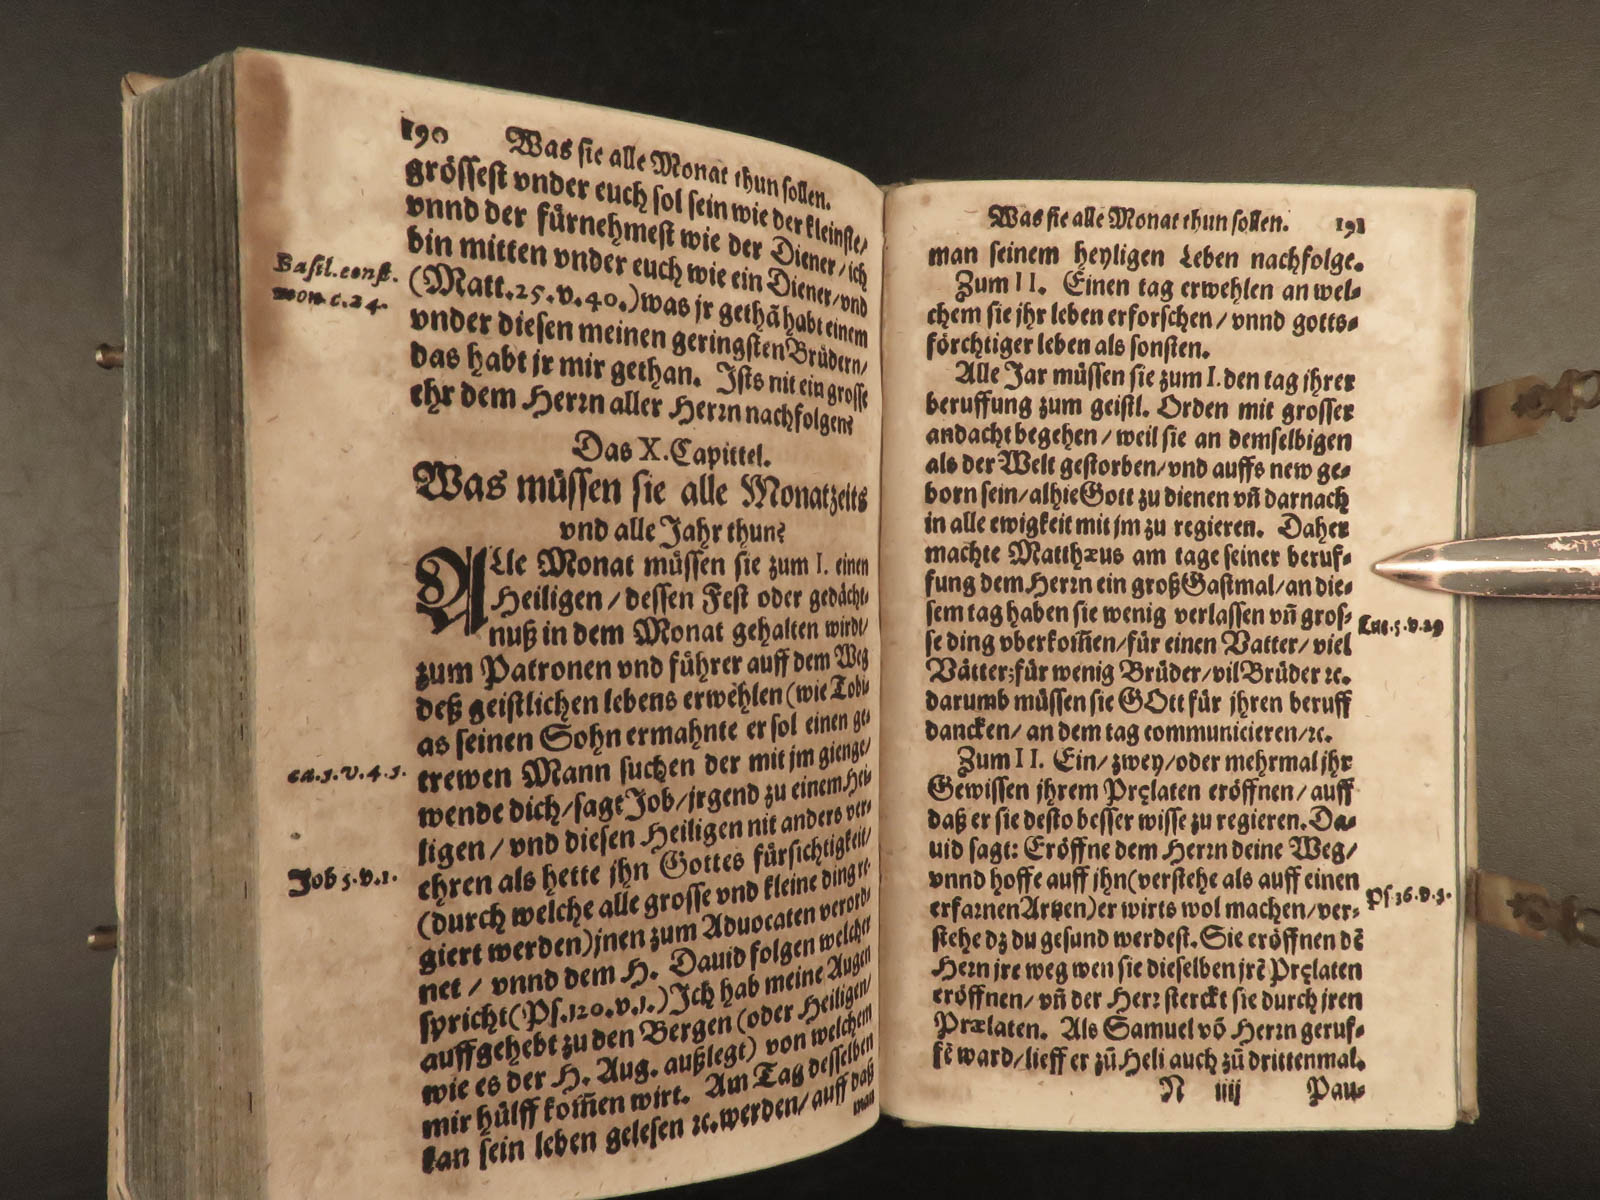 190 Was sie alle Monat thun sollen.
grössest vnder euch sol sein wie der kleinste/
vnnd der fürnehmest wie der Diener/ich
bin mitten vnder euch wie ein Diener/vnd
(Matt.25.v.40.)was jr gethā habt einem
vnder diesen meinen geringsten Brüdern/
das habt jr mir gethan. Ists nit ein grosse
ehr dem Herrn aller Herrn nachfolgen?
Basil.const.
mon.c.24.
Das X. Capittel.
Was müssen sie alle Monatzeits
vnd alle Jahr thun?
ALle Monat müssen sie zum I. einen
Heiligen/dessen Fest oder gedächt-
nuß in dem Monat gehalten wirdt/
zum Patronen vnd führer auff dem Weg
deß geistlichen lebens erwehlen(wie Tobi-
as seinen Sohn ermahnte er sol einen ge-
trewen Mann suchen der mit jm gienge/
wende dich/sagt Job/jrgend zu einem Hei-
ligen/vnd diesen Heiligen nit anders ver-
ehren als hette jhn Gottes fürsichtigkeit/
(durch welche alle grosse vnd kleine ding re-
giert werden)jnen zum Aduocaten verord-
net/vnnd dem H. Dauid folgen welcher
spricht(Ps.120.v.1.)Ich hab meine Augen
auffgehebt zu den Bergen(oder Heiligen/
wie es der H. Aug. außlegt) von welchem
mir hülff kom̄en wirt. Am Tag desselben
kan sein leben gelesen ꝛc.werden/auff daß
man
ca.5.v.4.5.
Job 5.v.1.
Was sie alle Monat thun sollen. 191
man seinem heyligen Leben nachfolge.
Zum II. Einen tag erwehlen an wel-
chem sie jhr leben erforschen/vnnd gotts-
förchtiger leben als sonsten.
Alle Jar müssen sie zum I. den tag jhrer
beruffung zum geistl. Orden mit grosser
andacht begehen/weil sie an demselbigen
als der Welt gestorben/vnd auffs new ge-
born sein/alhie Gott zu dienen vñ darnach
in alle ewigkeit mit jm zu regieren. Daher
machte Matthæus am tage seiner beruf-
fung dem Herrn ein groß Gastmal/an die-
sem tag haben sie wenig verlassen vñ gros-
se ding vberkom̄en/für einen Vatter/viel
Vätter;für wenig Brüder/vil Brüder ꝛc.
darumb müssen sie GOtt für jhren beruff
dancken/an dem tag communicieren/ꝛc.
Zum II. Ein/zwey/oder mehrmal jhr
Gewissen jhrem Pręlaten eröffnen/auff
daß er sie desto besser wisse zu regieren. Da-
uid sagt: Eröffne dem Herrn deine Weg/
vnnd hoffe auff jhn(verstehe als auff einen
erfarnen Artzen)er wirts wol machen/ver-
stehe dz du gesund werdest. Sie eröffnen dē
Hern jre weg wen sie dieselben jrē Pręlaten
eröffnen/vñ der Herr sterckt sie durch jren
Prælaten. Als Samuel vō Herrn geruf-
fē ward/lieff er zū Heli auch zū drittenmal.
N iiij Pau-
Luc.5.v.29
Ps.36.v.5.